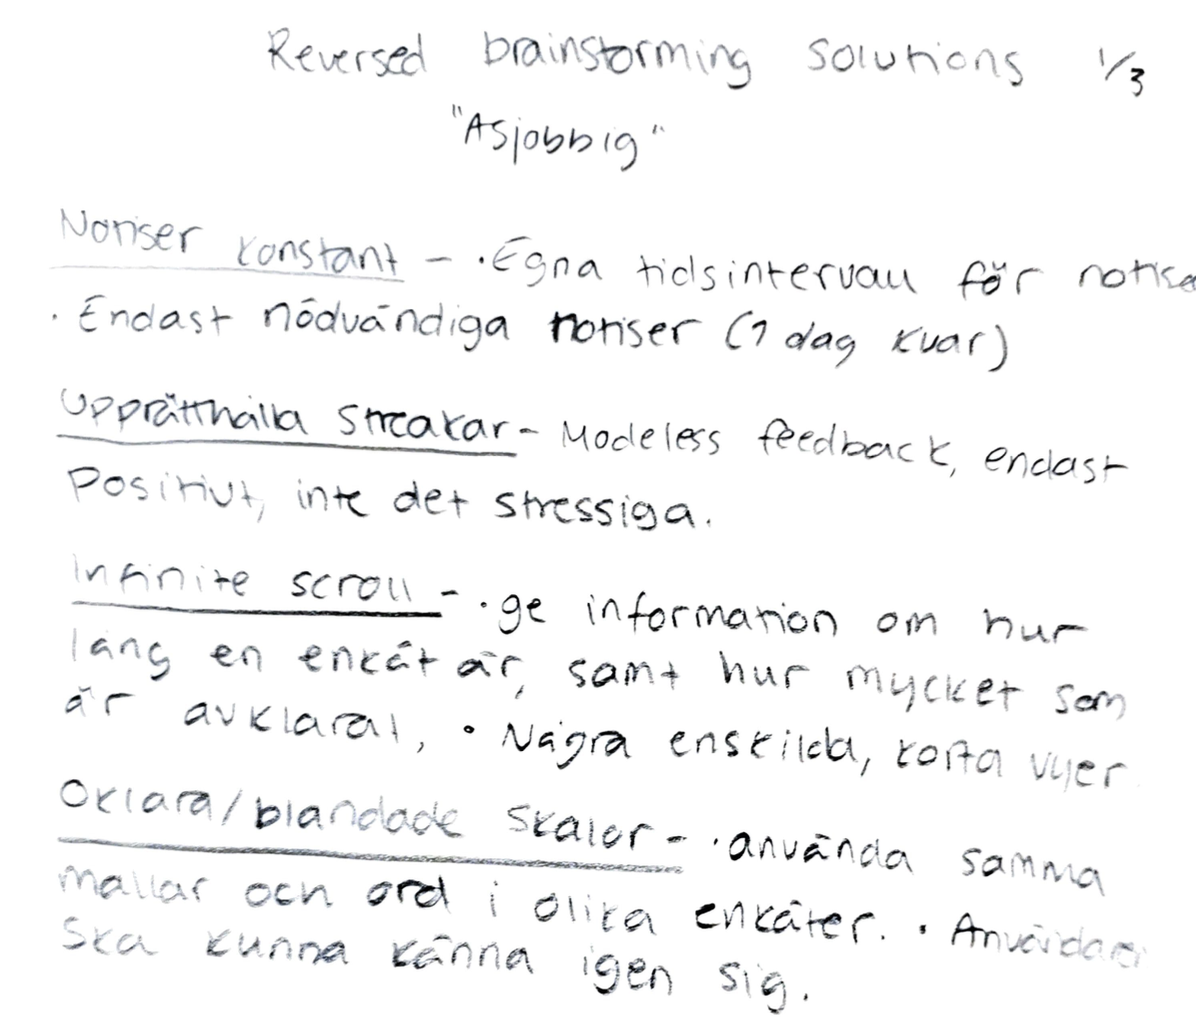 Reversed brainstorming solutions 1/3
"Asjobbig"
Notiser konstant - · Egna tidsintervall för notise
· Endast nödvändiga notiser (1 dag kvar)
Upprätthålla streakar - Modeless feedback, endast
Positivt, inte det stressiga.
Infinite scroll - · ge information om hur
lång en enkät är, samt hur mycket som
är avklarat, • Några enskilda, korta vyer
Oklara/blandade skalor - · använda samma
mallar och ord i olika enkäter. • Användaren
Ska kunna känna igen sig.